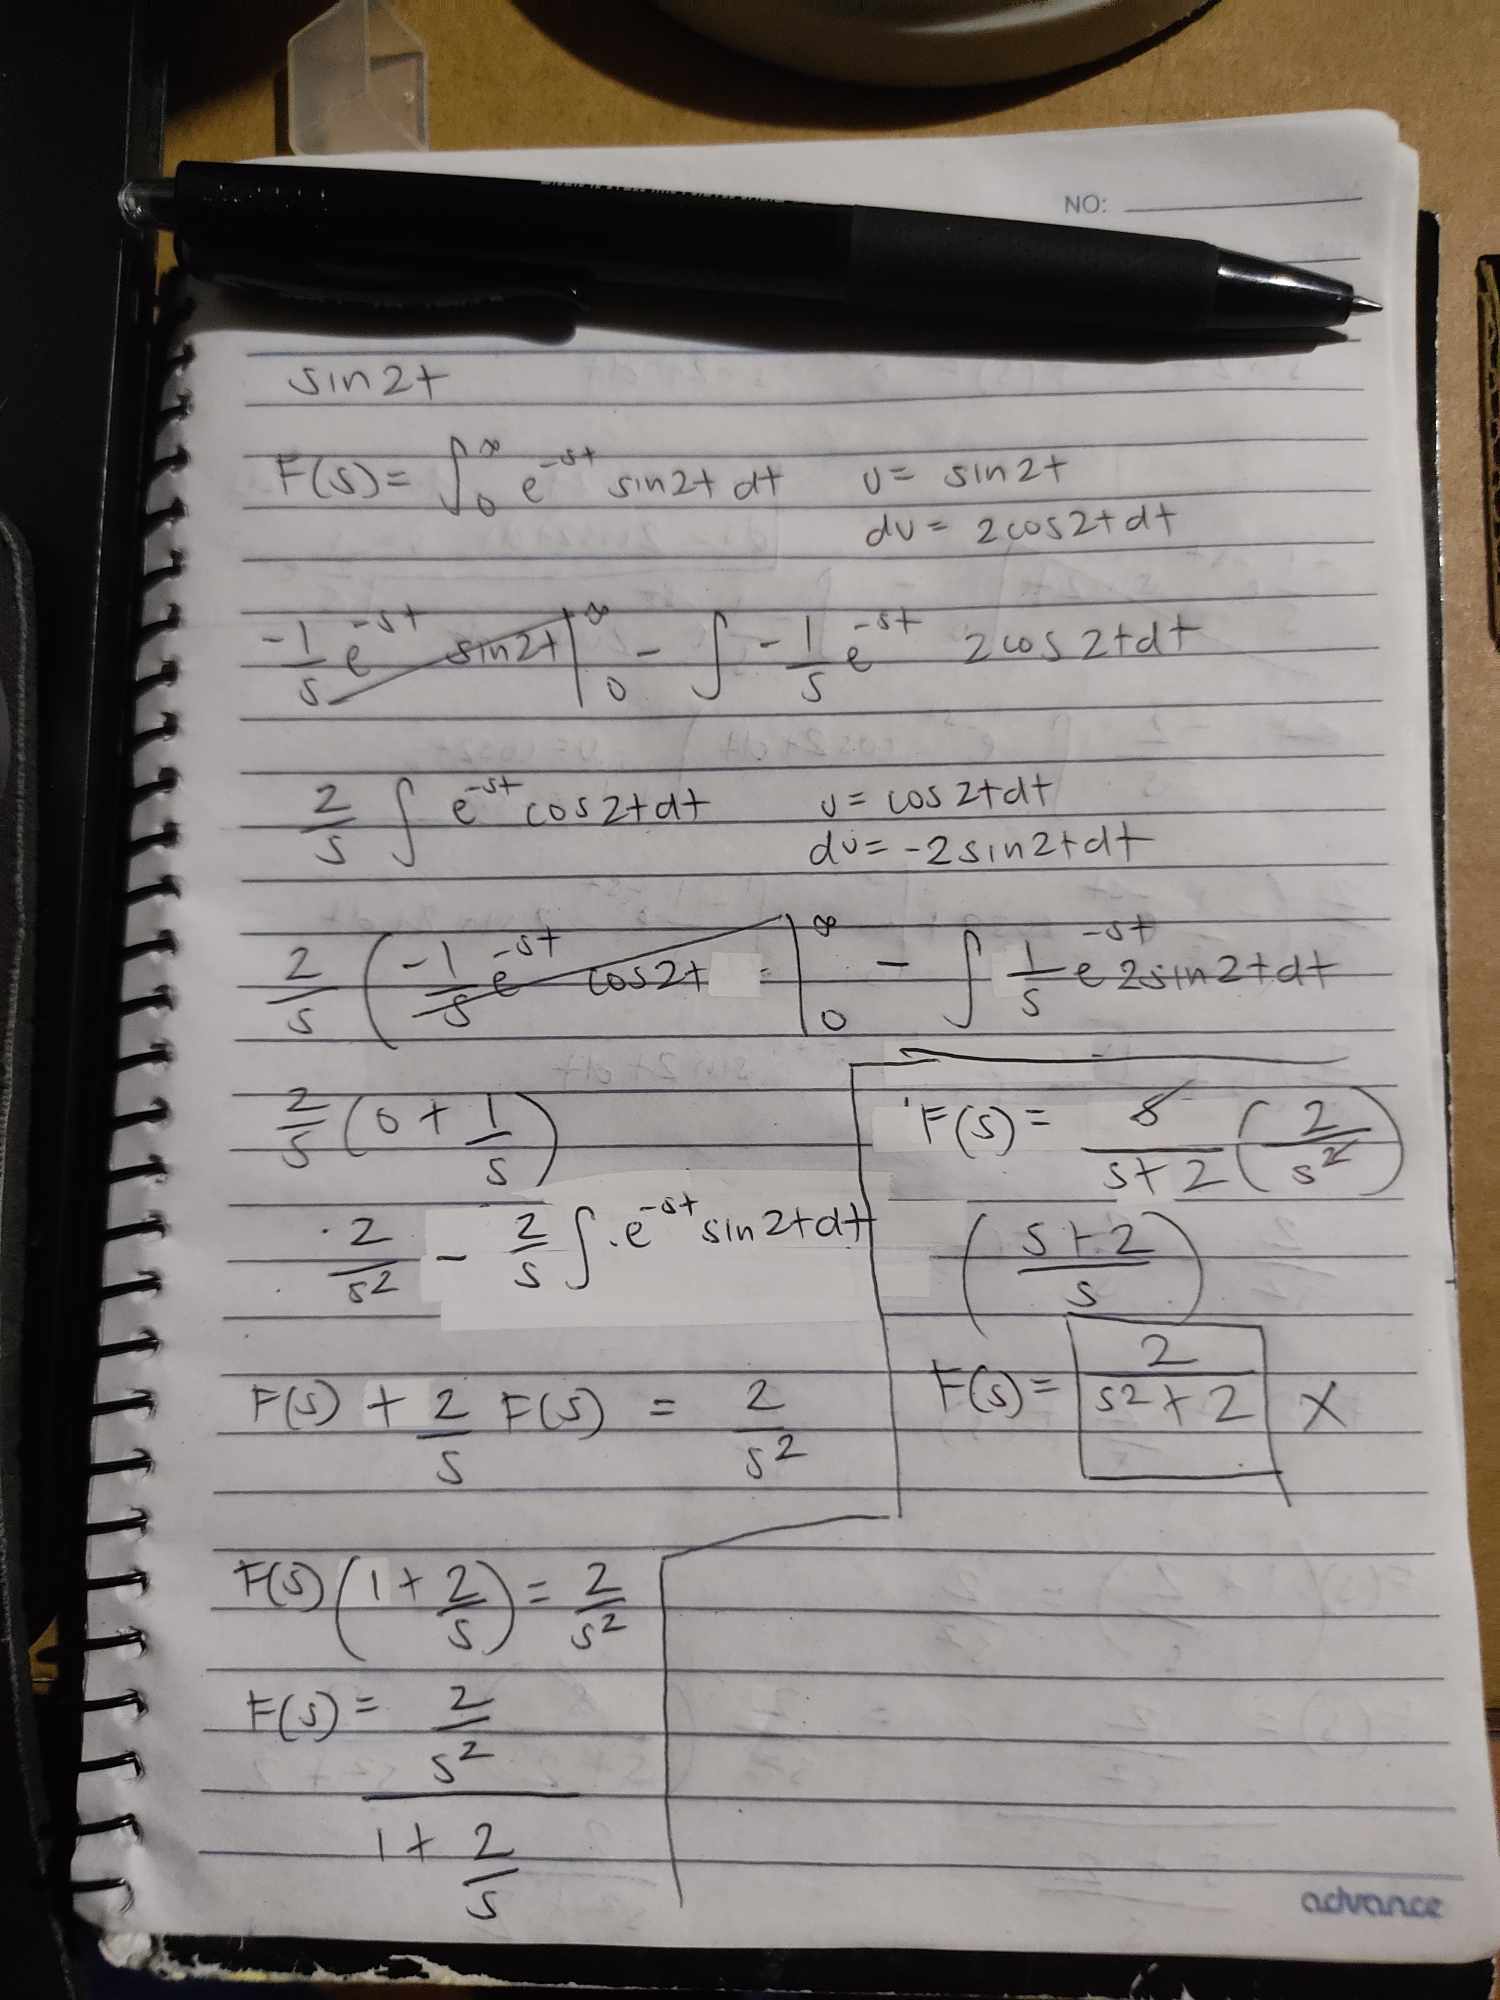 NO:
sin2t
F(s) = ∫₀^∞ e^-st sin2t dt    u = sin2t
du = 2cos2t dt
-1/s e^-st sin2t |₀^∞ - ∫ -1/s e^-st 2cos2tdt
2/s ∫ e^-st cos2tdt    u = cos2tdt
du = -2sin2tdt
2/s ( -1/s e^-st cos2t |₀^∞ - ∫ 1/s e^-st 2sin2tdt
2/s (0 + 1/s)
2/s² - 2/s ∫ e^-st sin2tdt
F(s) + 2/s F(s) = 2/s²
F(s) (1 + 2/s) = 2/s²
F(s) = 2/s²
1 + 2/s
F(s) = s/s+2 (2/s²)
(s+2/s)
F(s) = 2/s²+2 X
advance